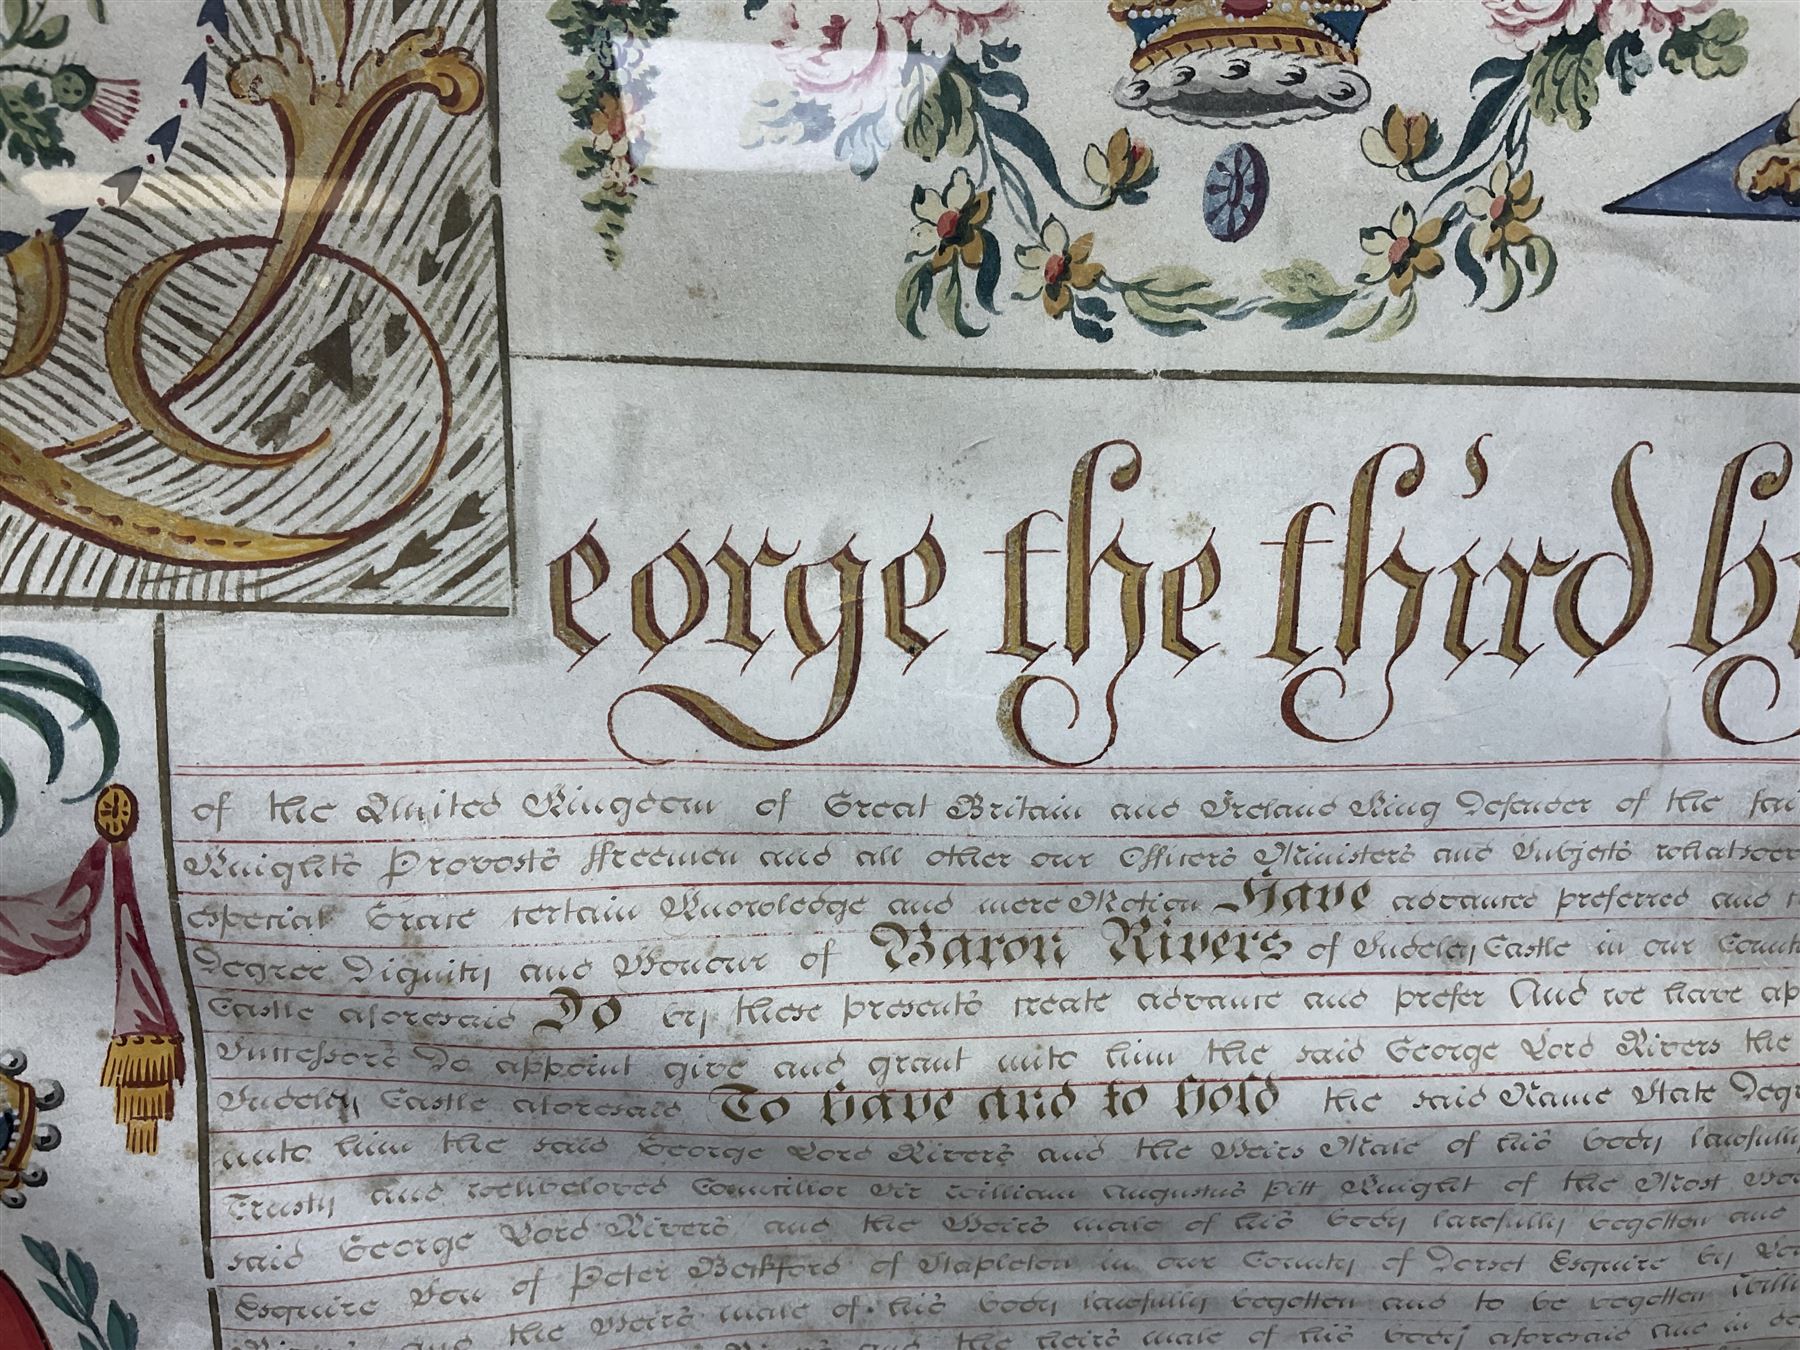 George the third by
of the United Kingdom of Great Britain and Ireland King Defender of the fai
Knights Provosts ffreemen and all other our Officers Ministers and Subjects whatsoe
especial Grace certain Knowledge and mere Motion Have advanced preferred and
Degree Dignity and Honour of Baron Rivers of Sudeley Castle in our Count
Castle aforesaid Do by these presents create advance and prefer And we have ap
Successors Do appoint give and grant unto him the said George Lord Rivers the
Sudeley Castle aforesaid To have and to hold the said Name State Degr
unto him the said George Lord Rivers and the Heirs Male of his body lawfully
Trusty and welbeloved Councillor Sir William Augustus Pitt Knight of the Most Ho
said George Lord Rivers and the Heirs male of his body lawfully begotten and
Esquire Son of Peter Beckford of Stapleton in our County of Dorset Esquire by Lo
and the Heirs male of his body lawfully begotten and to be begotten
and the heirs male of his body aforesaid and in de